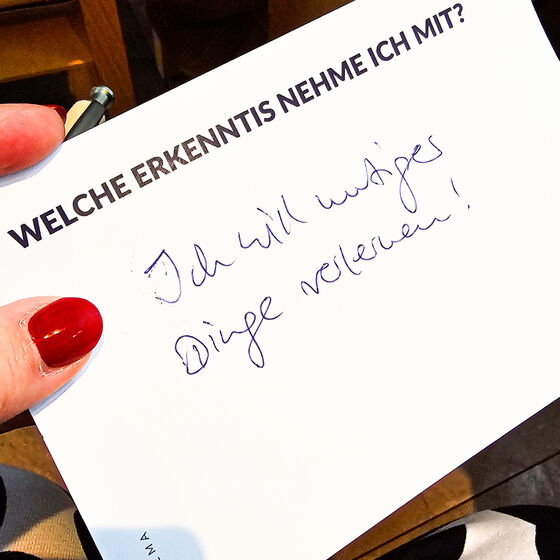 WELCHE ERKENNTIS NEHME ICH MIT?
Ich will mutiger
Dinge verlernen!